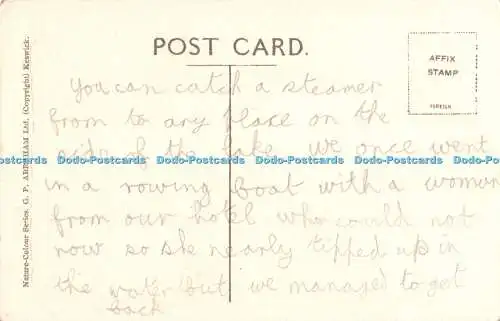 POST CARD.
AFFIX
STAMP
FOREIGN
Nature-Colour Series. G. P. ABRAHAM Ltd. (Copyright) Keswick.
You can catch a steamer
from to any place on the
side of the lake. We once went
Dodo-Postcards Dodo-Postcards Dodo-Postcards Dodo-Postcards Dodo-Postcards
in a rowing boat with a woman
from our hotel who could not
row so she nearly tipped up in
the water but we managed to get
back